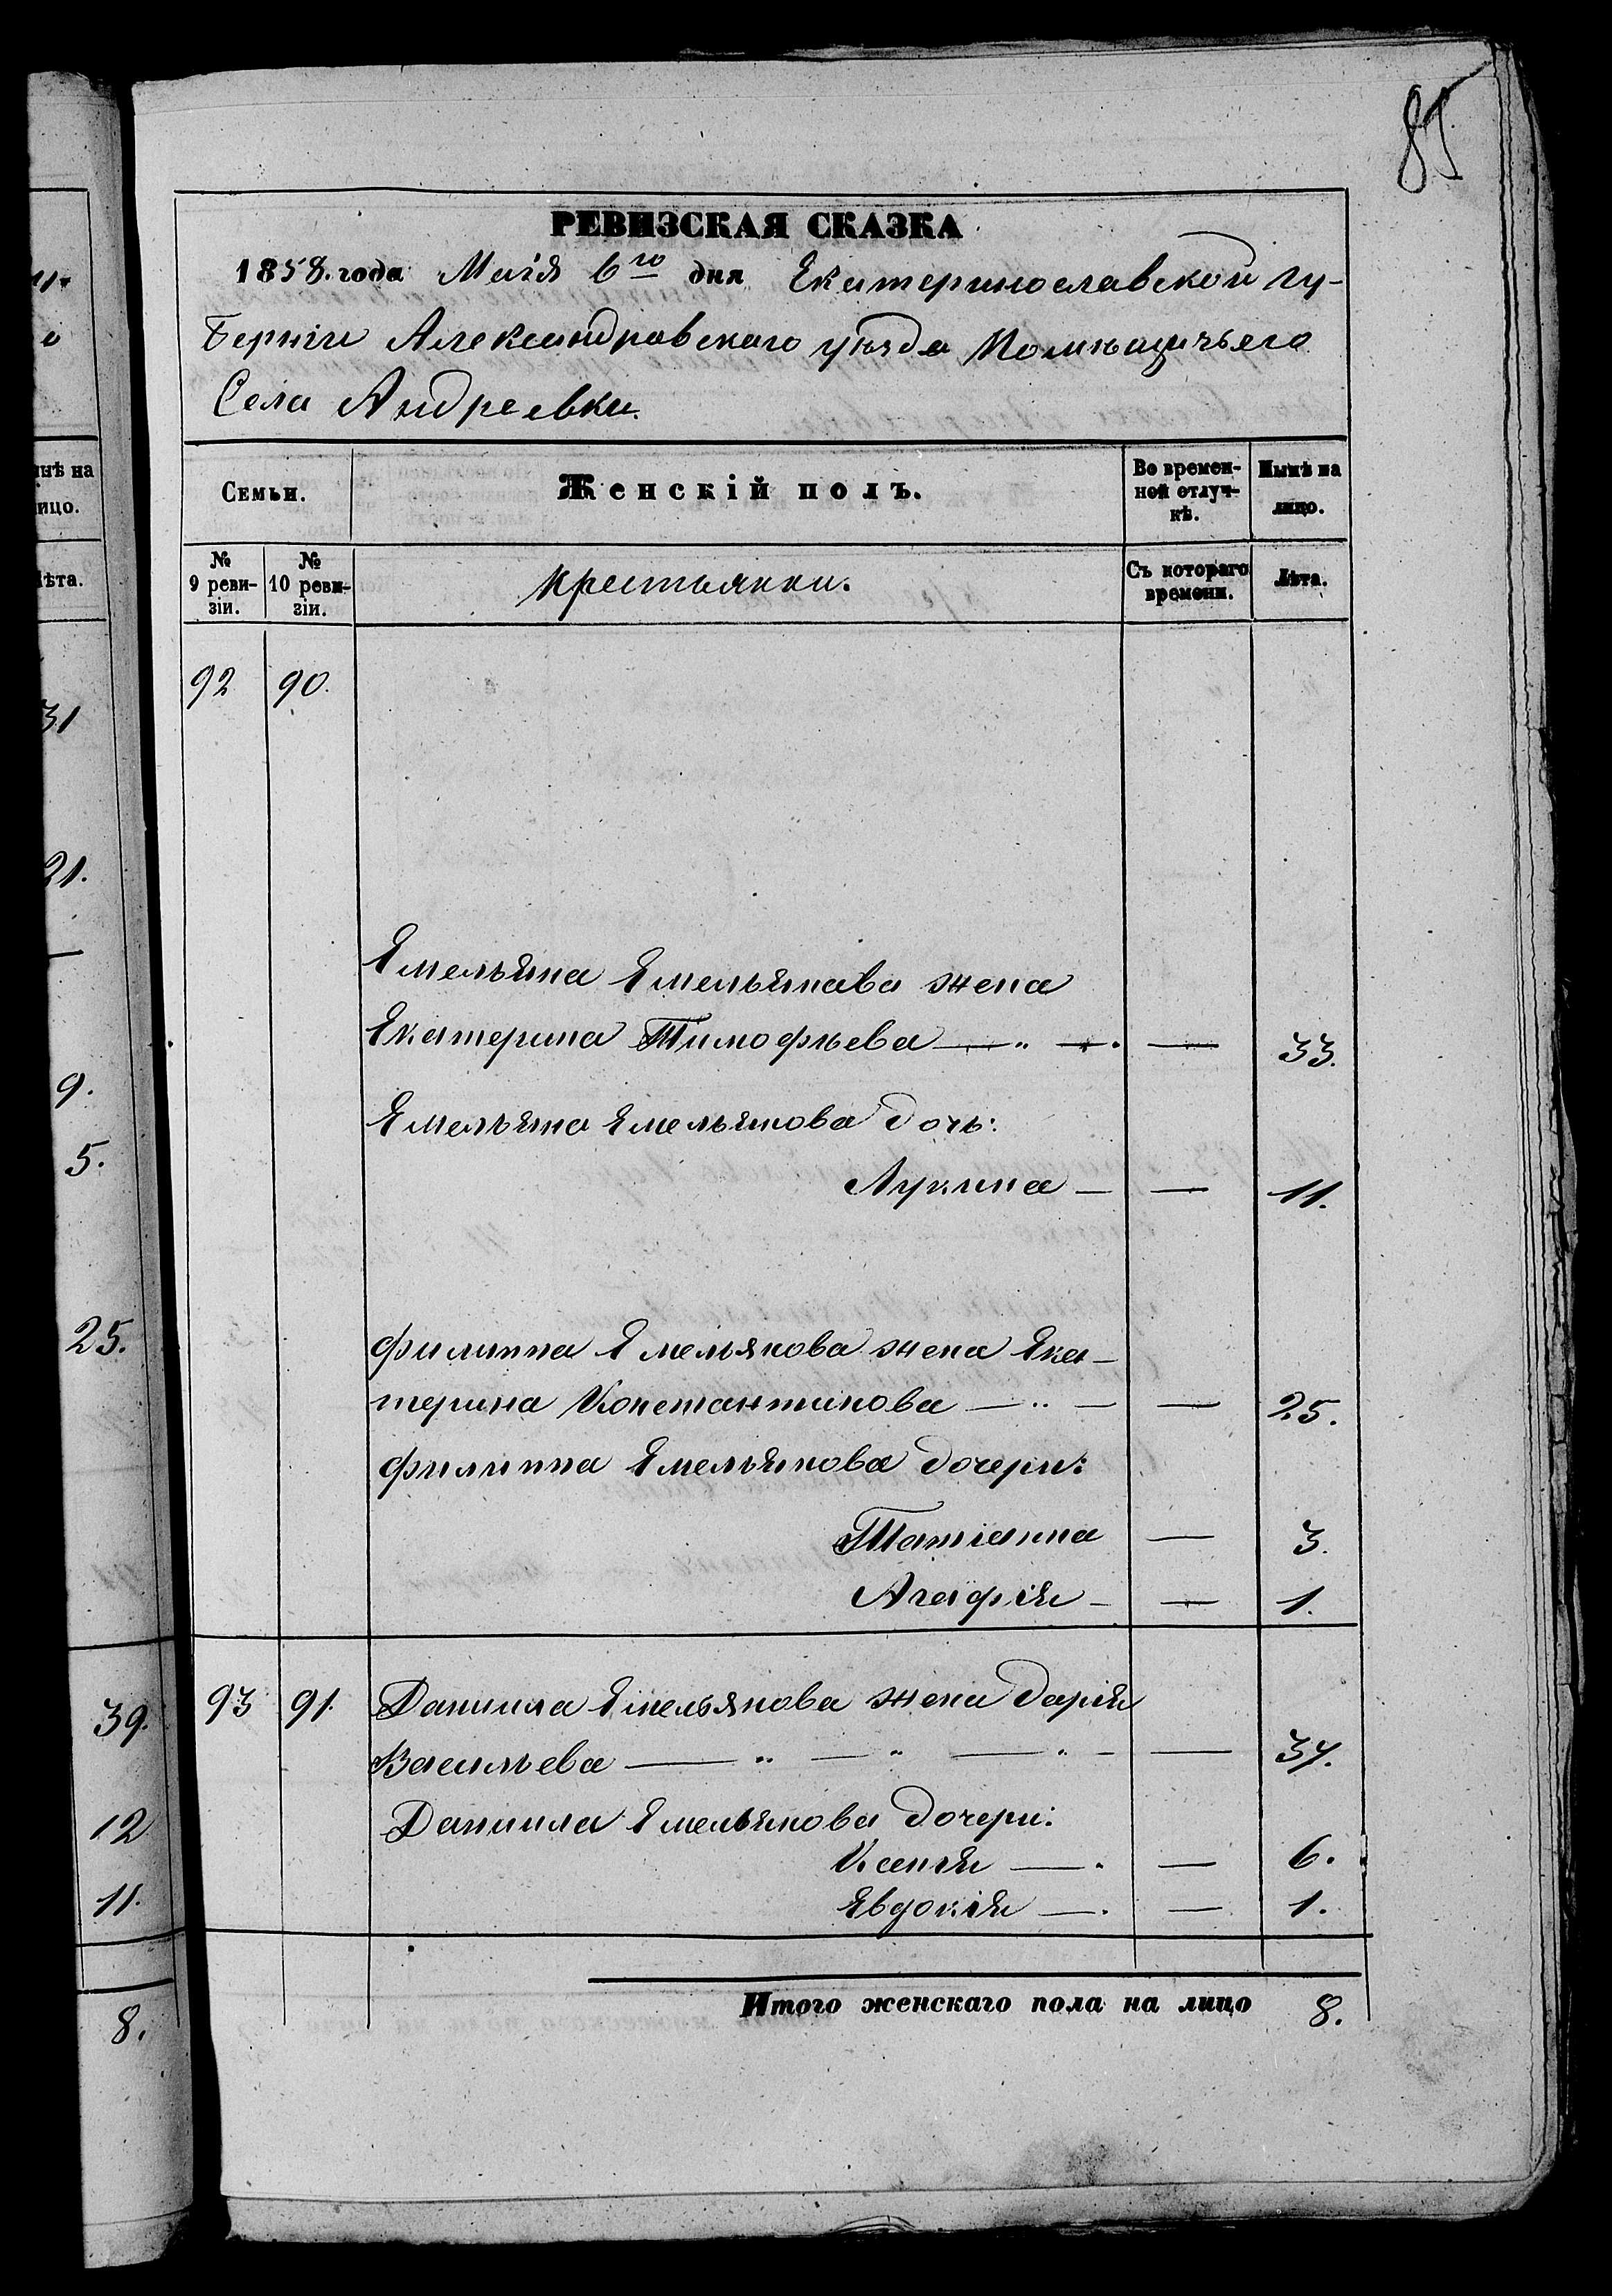 85
РЕВИЗСКАЯ СКАЗКА
1858. года Маія 6го дня Екатеринославской гу-
берніи Александровскаго уѣзда Помѣщичьяго
Села Андреевки.
Семьи.
Женскій полъ.
Во времен-
ной отлуч-
кѣ.
Нынѣ на
лицо.
№
9 реви-
зіи.
№
10 реви-
зіи.
Крестьянки.
Съ котораго
времени.
Лѣта.
92 90.
Емельяна Емельянова жена
Екатерина Тимофѣева — „ — . — 33.
Емельяна Емельянова дочь:
Лукина — — 11.
Филиппа Емельянова жена Ека-
терина Константинова — „ — — 25.
Филиппа Емельянова дочери:
Татіанна — 3.
Агафія — — 1.
93 91. Даниила Емельянова жена Дарія
Васильева — „ — „ — „ — — 37.
Даниила Емельянова дочери:
Ксенія — . — 6.
Евдокія — . — 1.
Итого женскаго пола на лицо 8.
нѣ на
ицо.
ѣта.
31
21.
—
9.
5.
25.
39.
12
11.
8.